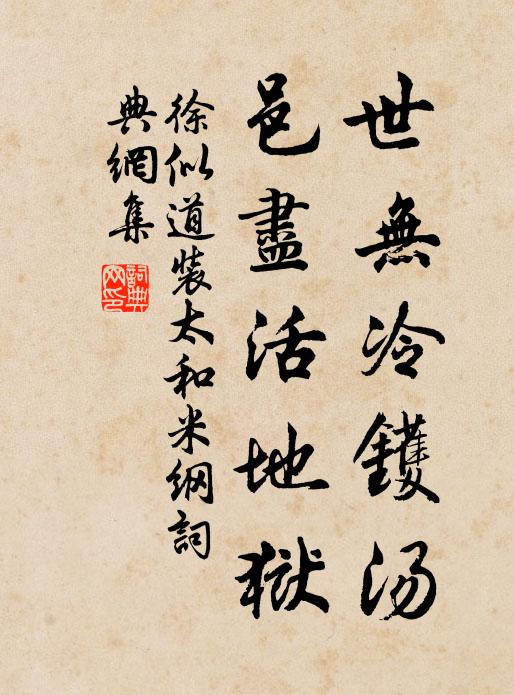 世無冷鑊湯
邑盡活地獄
徐似道裝太和米綱詞
典網集
詞典網印